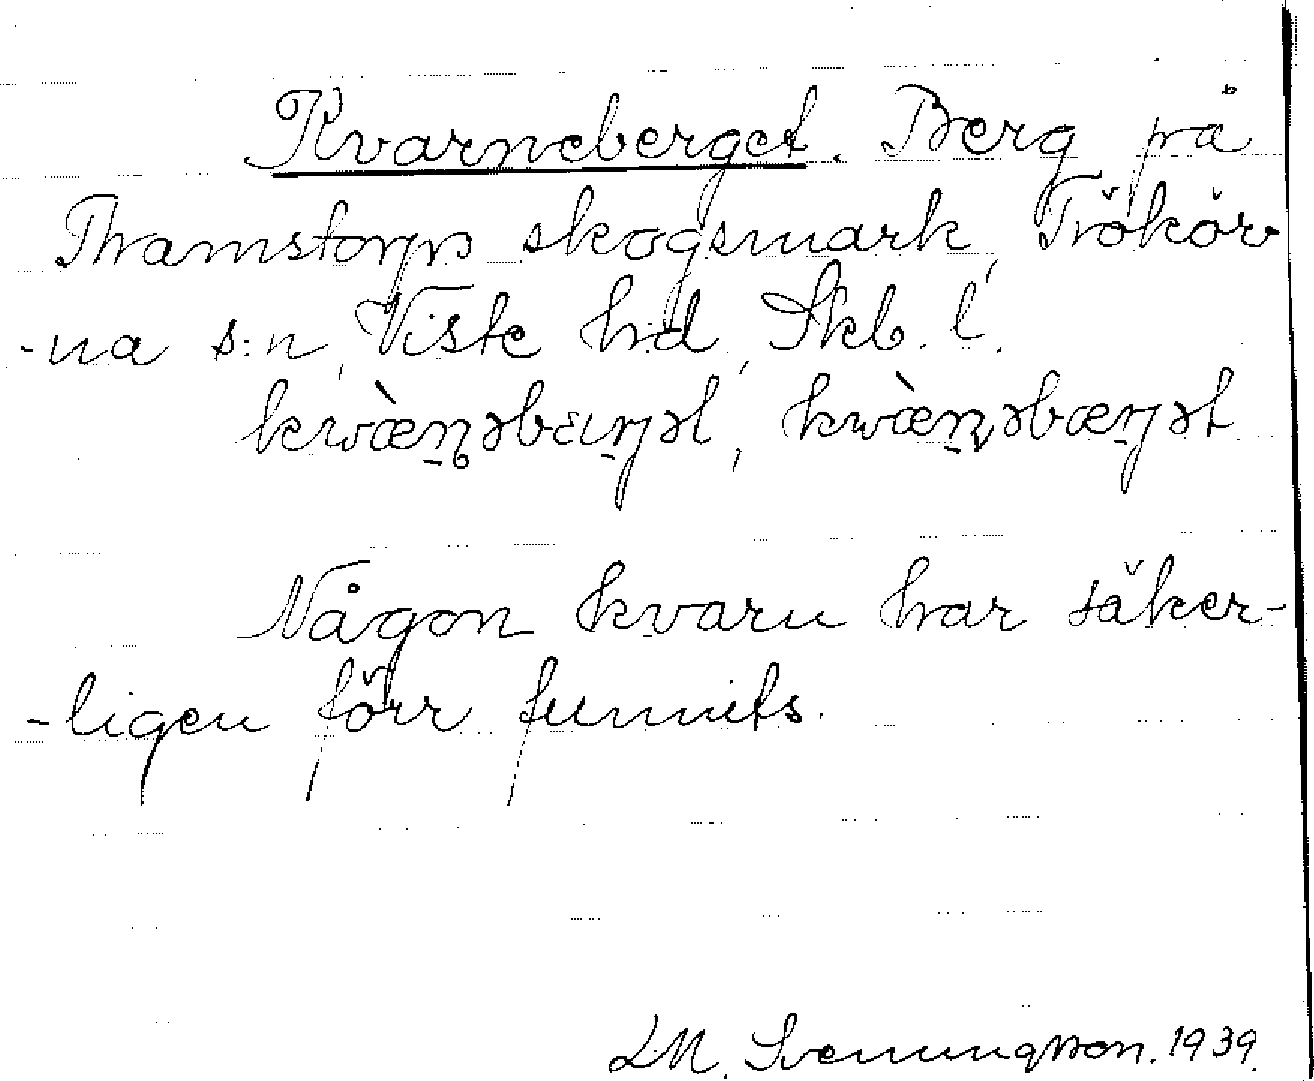 Kvarneberget. Berg på
Thamstorps skogsmark, Trökör-
-na s:n, Viste hd, Skb. l.
Någon kvarn har säker-
-ligen förr funnits.
LM. Svenungsson. 1939.